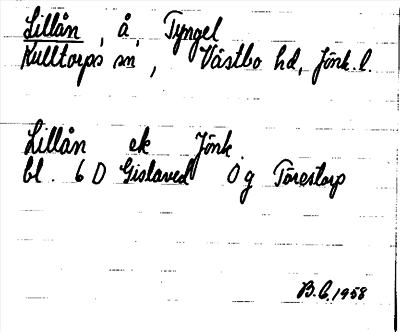 Lillån, å, Tyngel
Kulltorps sn, Västbo hd, Jönk. l.
Lillån ek Jönk.
bl. 6 D Gislaved 0 g Törestorp
B.C. 1958